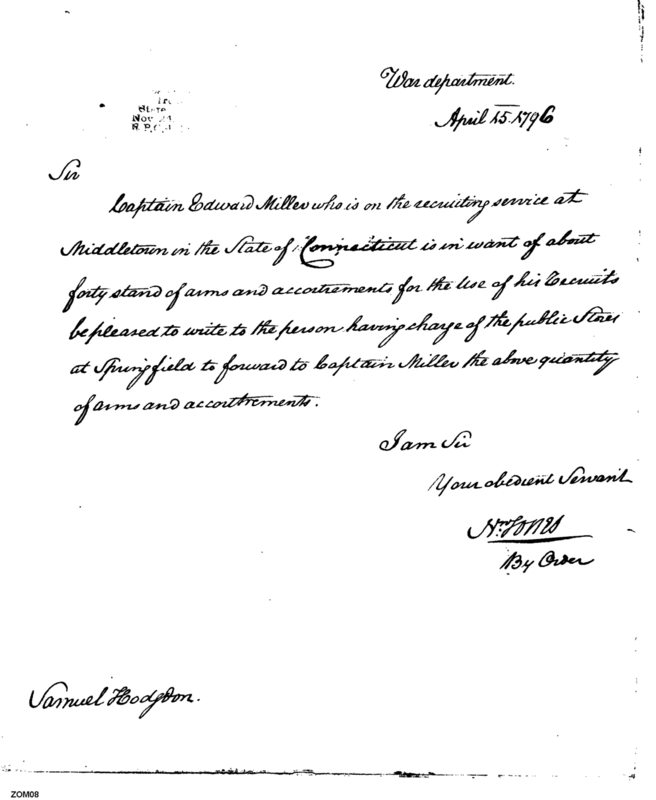 War department.
April 15. 1796
State
Nov 24
Sir
Captain Edward Miller who is on the recruiting service at
Middletown in the State of Connecticut is in want of about
forty stand of arms and accoutrements for the Use of his Recruits
be pleased to write to the person having charge of the public Stores
at Springfield to forward to Captain Miller the above quantity
of arms and accouttrements.
I am Sir
Your obedient Servant
Nn Jones
By Order
Samuel Hodgdon.
ZOM08